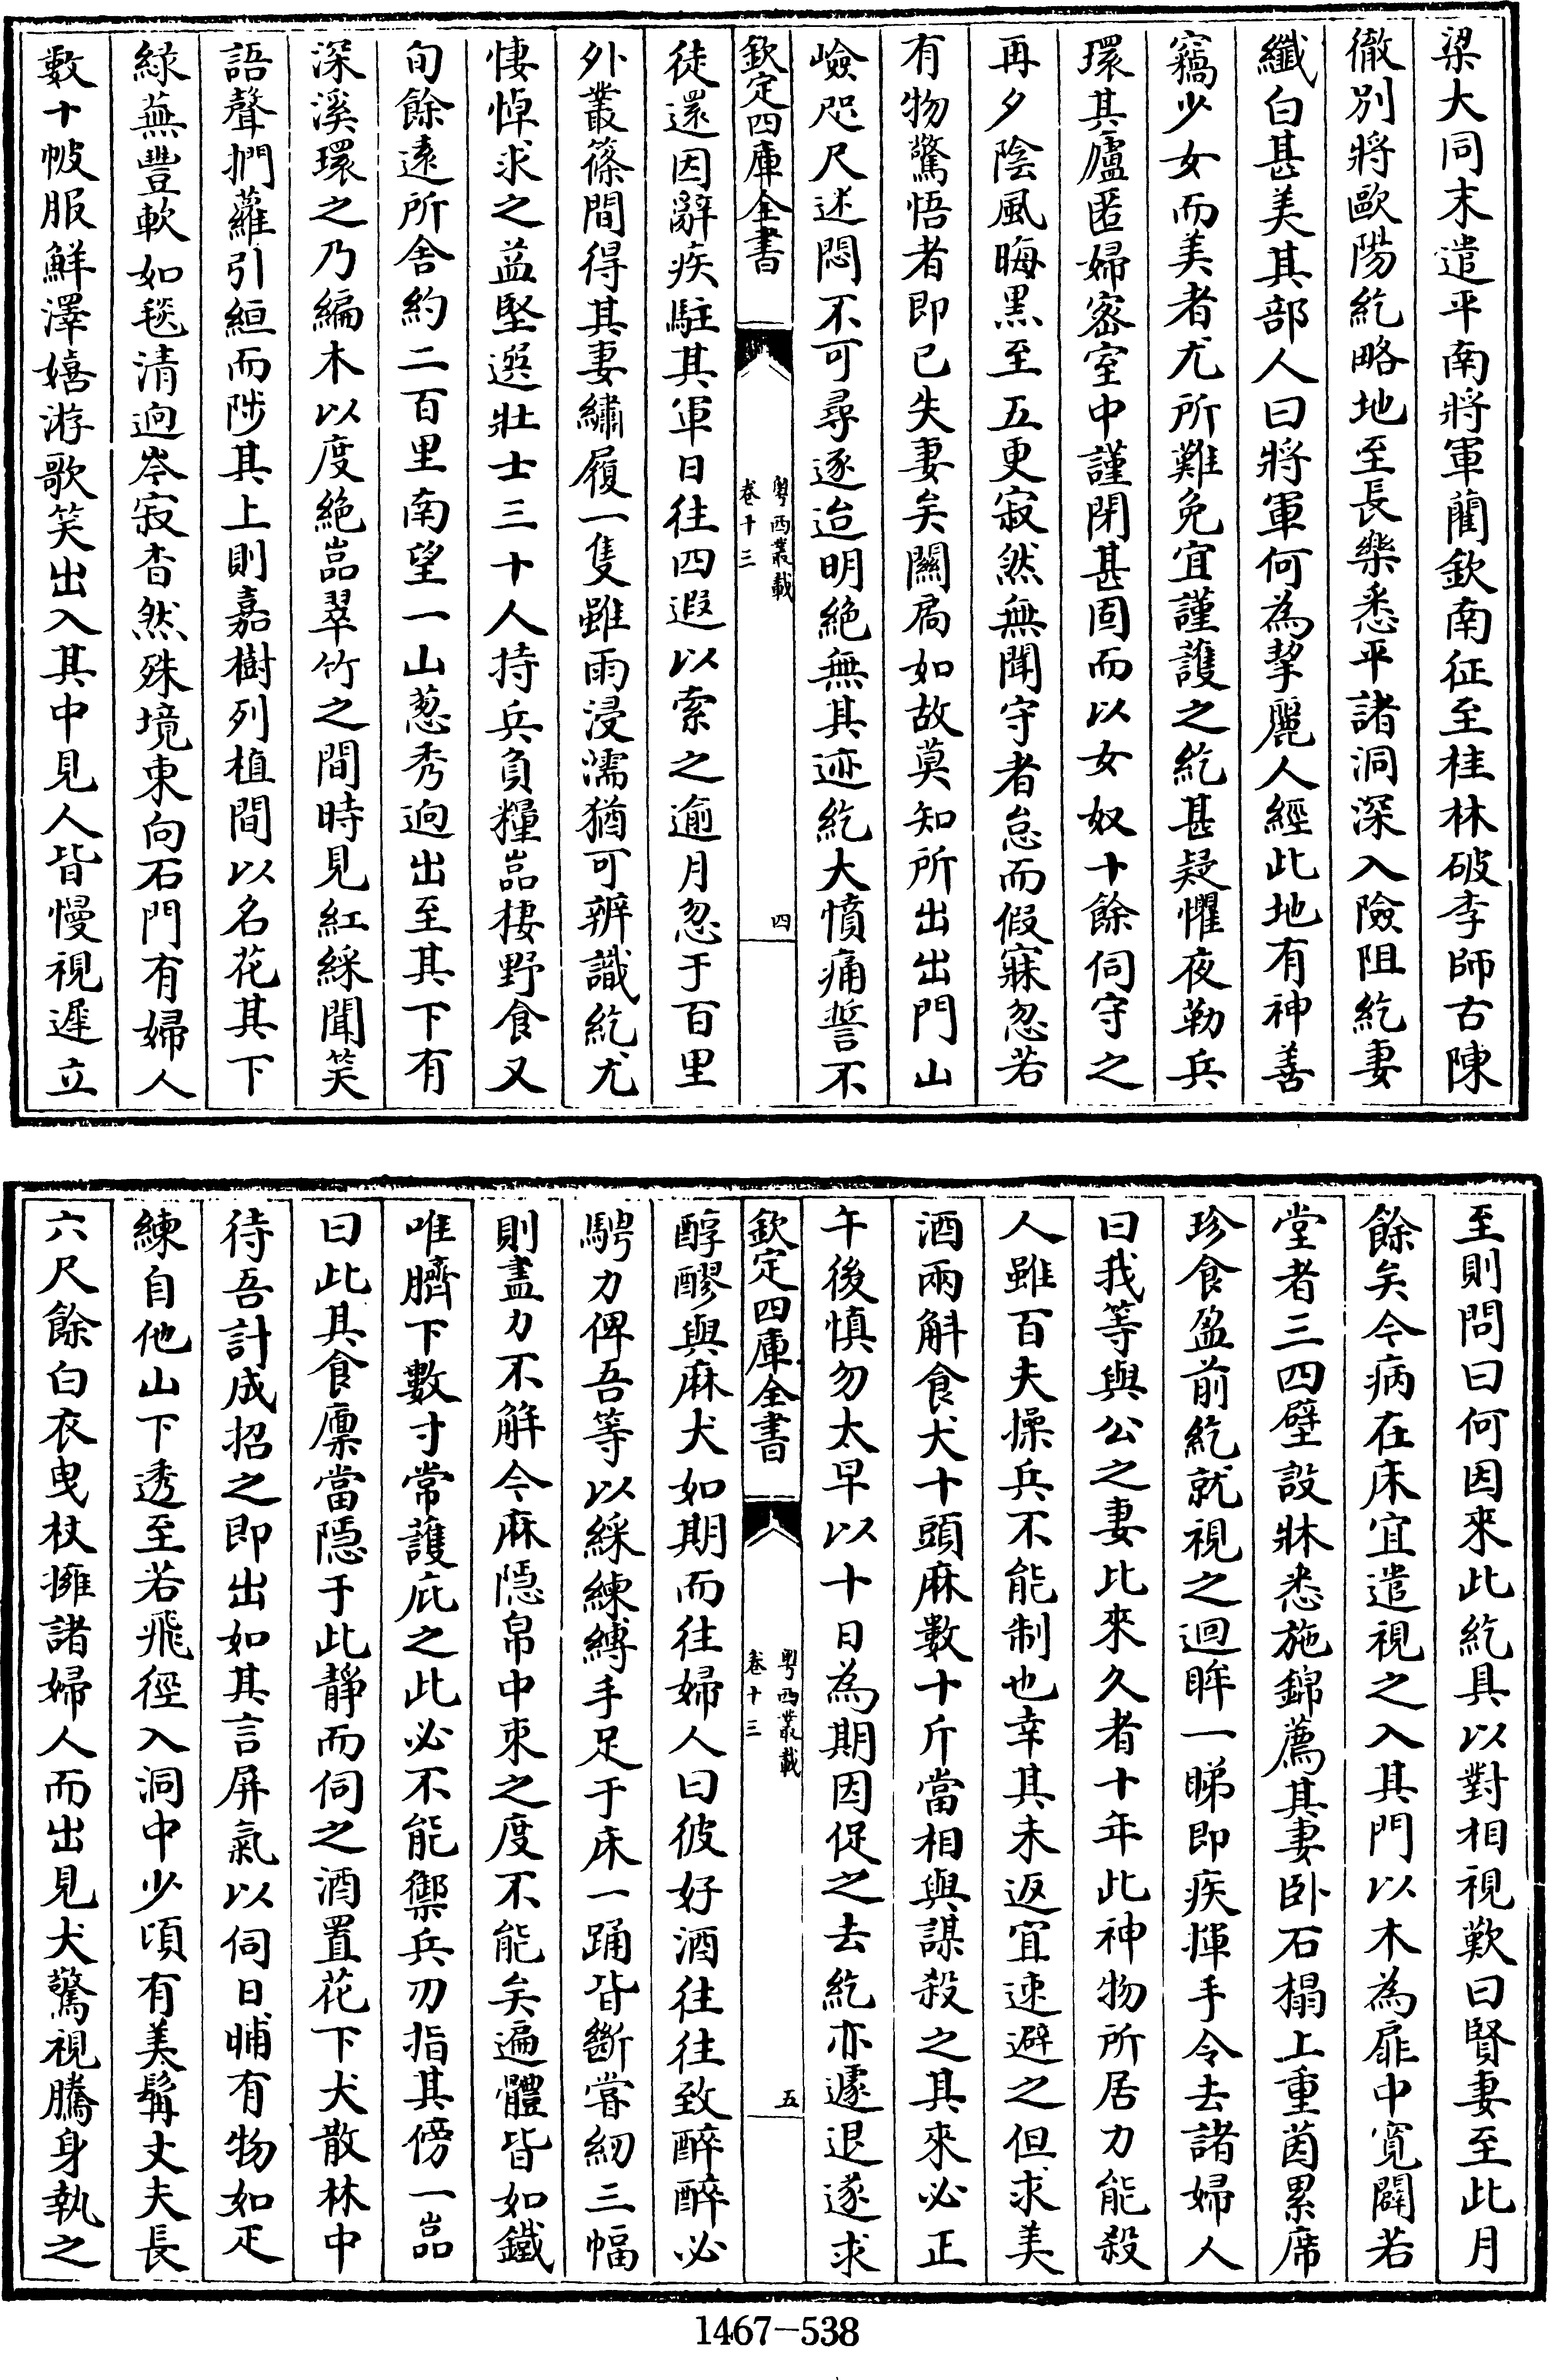 梁大同末遣平南將軍藺欽南征至桂林破李師古陳
徹别將歐陽紇略地至長樂悉平諸洞深入險阻紇妻
纎白甚美其部人曰將軍何為挈麗人經此地有神善
竊少女而美者尤所難免宜謹護之紇甚疑懼夜勒兵
環其廬匿婦密室中謹閉甚固而以女奴十餘伺守之
再夕陰風晦黑至五更寂然無聞守者怠而假寐忽若
有物驚悟者即已失妻矣關扃如故莫知所出出門山
嶮咫尺迷悶不可尋逐迨明絶無其迹紇大憤痛誓不
欽定四庫全書
粤西叢載
卷十三
四
徒還因辭疾駐其軍日往四遐以索之逾月忽于百里
外叢篠間得其妻繡履一隻雖雨浸濡猶可辨識紇尤
悽悼求之益堅選壯士三十人持兵負糧嵓棲野食又
旬餘遠所舍約二百里南望一山葱秀逈出至其下有
深溪環之乃編木以度絶嵓翠竹之間時見紅綵聞笑
語聲捫蘿引絙而陟其上則嘉樹列植間以名花其下
緑蕪豐軟如毯清逈岑寂杳然殊境東向石門有婦人
數十帔服鮮澤嬉游歌笑出入其中見人皆慢視遲立
至則問曰何因來此紇具以對相視歎曰賢妻至此月
餘矣今病在床宜遣視之入其門以木為扉中寛闢若
堂者三四壁設牀悉施錦薦其妻卧石榻上重茵累席
珍食盈前紇就視之迴眸一睇即疾揮手令去諸婦人
曰我等與公之妻比來久者十年此神物所居力能殺
人雖百夫操兵不能制也幸其未返宜速避之但求美
酒兩斛食犬十頭麻數十斤當相與謀殺之其來必正
午後慎勿太早以十日為期因促之去紇亦遽退遂求
欽定四庫全書
粤西叢載
卷十三
五
醇醪與麻犬如期而往婦人曰彼好酒往往致醉醉必
騁力俾吾等以綵練縛手足于床一踊皆斷嘗紉三幅
則盡力不解今麻隠帛中束之度不能矣遍體皆如鐵
唯臍下數寸常護庇之此必不能禦兵刃指其傍一嵓
曰此其食廩當隠于此靜而伺之酒置花下犬散林中
待吾計成招之即出如其言屏氣以伺日晡有物如疋
練自他山下透至若飛徑入洞中少頃有美髯丈夫長
六尺餘白衣曳杖擁諸婦人而出見犬驚視騰身執之
1467—538